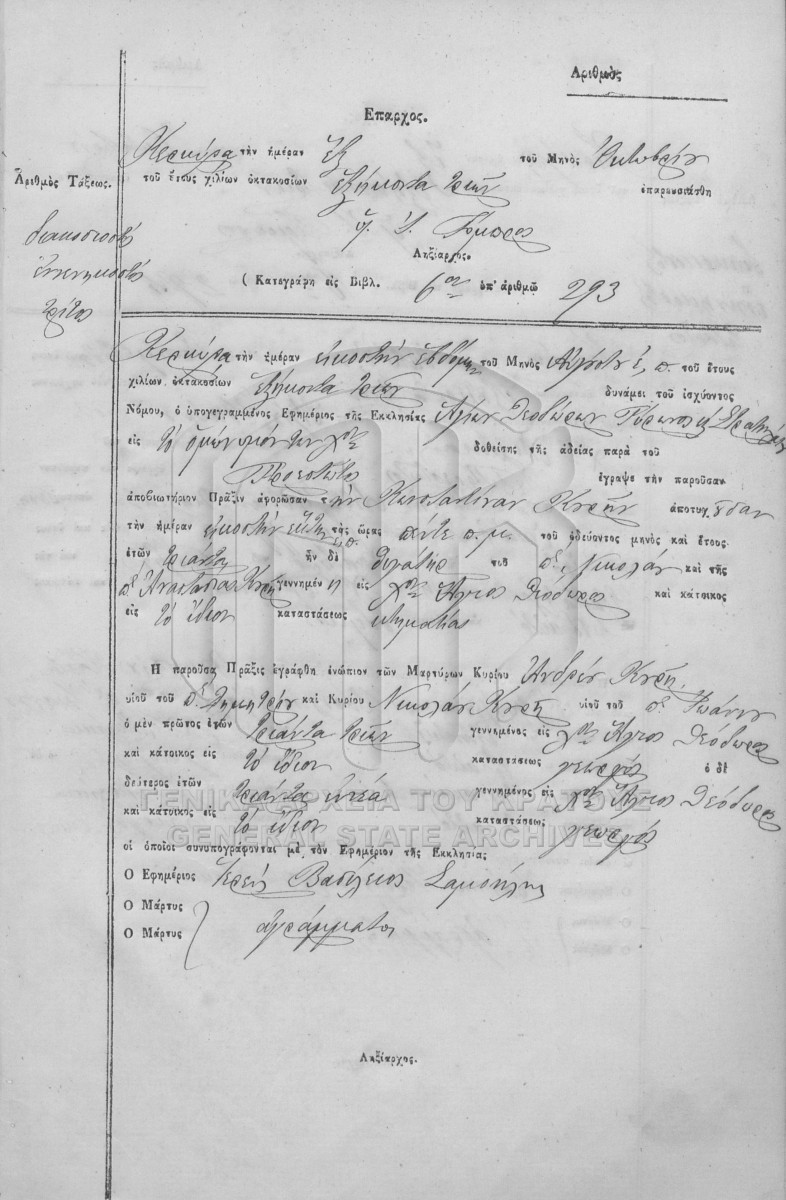 Αριθμὸς
Επαρχος.
Κερκύρα τὴν ἡμέραν ἕξ τοῦ Μηνὸς Ὀκτωβρίου
Ἀριθμὸς Τάξεως.
τοῦ ἔτους χιλίων ὀκτακοσίων ἑξήκοντα τριῶν ἐπαρουσιάσθη
διακοσιοστὸς
ἐννενηκοστὸς
τρίτος
Ληξίαρχος.
( Κατεγράφη εἰς Βιβλ. 6ον ὑπ' ἀριθμῶ 293
Κερκύρα τὴν ἡμέραν εἰκοστὴν ἑβδόμην τοῦ Μηνὸς Αὐγούστου ἔ. π. τοῦ ἔτους
χιλίων ὀκτακοσίων ἑξήκοντα τριῶν δυνάμει τοῦ ἰσχύοντος
Νόμου, ὁ ὑπογεγραμμένος Ἐφημέριος τῆς Ἐκκλησίας Ἁγίων Θεοδώρων
εἰς τὸ ὁμώνυμόν των χωρ. δοθείσης τῆς ἀδείας παρὰ τοῦ
Προεστῶτος ἔγραψε τὴν παροῦσαν
ἀποβιωτήριον Πρᾶξιν ἀφορῶσαν τὴν Κωνσταντίναν Κυρῆν ἀποτυχοῦσαν
τὴν ἡμέραν εἰκοστὴν ἕκτην ἔ.π. τῆς ὥρας πέντε π. μ. τοῦ ὁδεύοντος μηνὸς καὶ ἔτους
ἐτῶν τριάντα ἦν δὲ θυγάτηρ τοῦ π. Νικολάου καὶ τῆς
π. Ἀναστασίας Κυρῆ γεννημένη εἰς χωρ. Ἅγιος Θεόδωρος καὶ κάτοικος
εἰς τὸ ἴδιον καταστάσεως κτηματίας
Η παροῦσα Πρᾶξις ἐγράφθη ἐνώπιον τῶν Μαρτύρων Κυρίου Ἀνδρέου Κυρῆ
υἱοῦ τοῦ π. Δημητρίου καὶ Κυρίου Νικολάου Κυρῆ υἱοῦ τοῦ π. Ἰωάννου
ὁ μὲν πρῶτος ἐτῶν τριάντα τριῶν γεννημένος εἰς χωρ. Ἅγιος Θεόδωρος
καὶ κάτοικος εἰς τὸ ἴδιον καταστάσεως γεωργός ὁ δὲ
δεύτερος ἐτῶν τριάντα ἐννέα γεννημένος εἰς χωρ. Ἅγιος Θεόδωρος
καὶ κάτοικος εἰς τὸ ἴδιον καταστάσεως γεωργός
οἱ ὁποῖοι συνυπογράφονται μὲ τὸν Ἐφημέριον τῆς Ἐκκλησία;
Ο Ἐφημέριος Ἱερεὺς Βασίλειος Σαμοήλης
Ο Μάρτυς
Ο Μάρτυς ἀγράμματοι
Ληξίαρχος.
ΓΕΝΙΚΑ ΑΡΧΕΙΑ ΤΟΥ ΚΡΑΤΟΥΣ
GENERAL STATE ARCHIVES